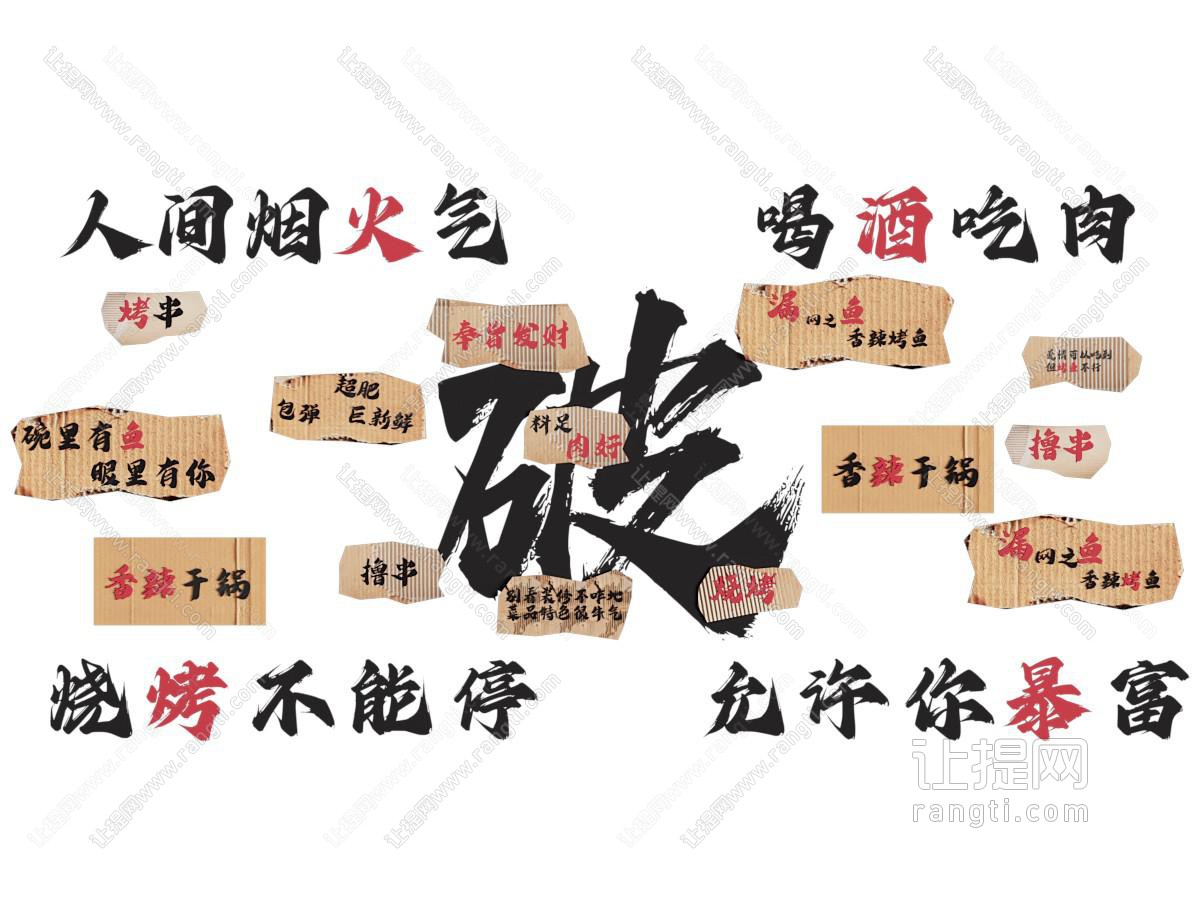 人间烟火气
喝酒吃肉
烤串
奉旨发财
漏网之鱼
香辣烤鱼
爱情可以吃别
但烤鱼不行
超肥
包弹 巨新鲜
碗里有鱼
眼里有你
破
料足
肉好
撸串
香辣干锅
漏网之鱼
香辣烤鱼
香辣干锅
撸串
别看装修不咋地
菜品特色很牛气
烧烤
烧烤不能停
允许你暴富
让提网
rangti.com
让提网www.rangti.com